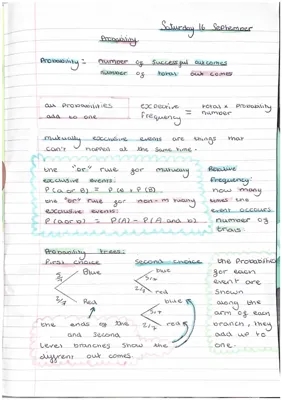 Saturday 16 September
Probability
Probability = number of successful outcomes
number of total out comes
all probabilities
add to one
expective
frequency = total x probability
number
mutually exclusive events are things that
can't happen at the same time.
the "or" rule for mutualy
exclusive events:
P(a or B) = P(A) + P(B).
the "or" rule for non-mutually
exclusive events:
P(a or b) = P(A) - P(A and B)
Relative
frequency:
how many
times the
event occurs
number of
trials
Probability trees:
First choice
second choice
Blue
Red
blue
red
blue
red
the ends of the
and second
Level branches show the
diffrent out comes.
the Probabilities
for each
event are
shown
along the
arm of each
branch, they
add up to
one.